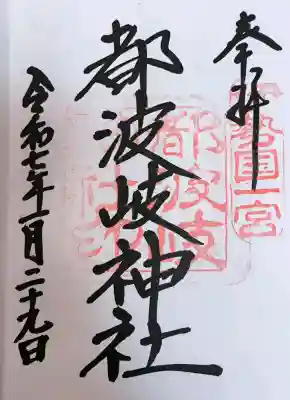 奉拝
伊勢國一宮
都波岐神社
令和七年一月二十九日